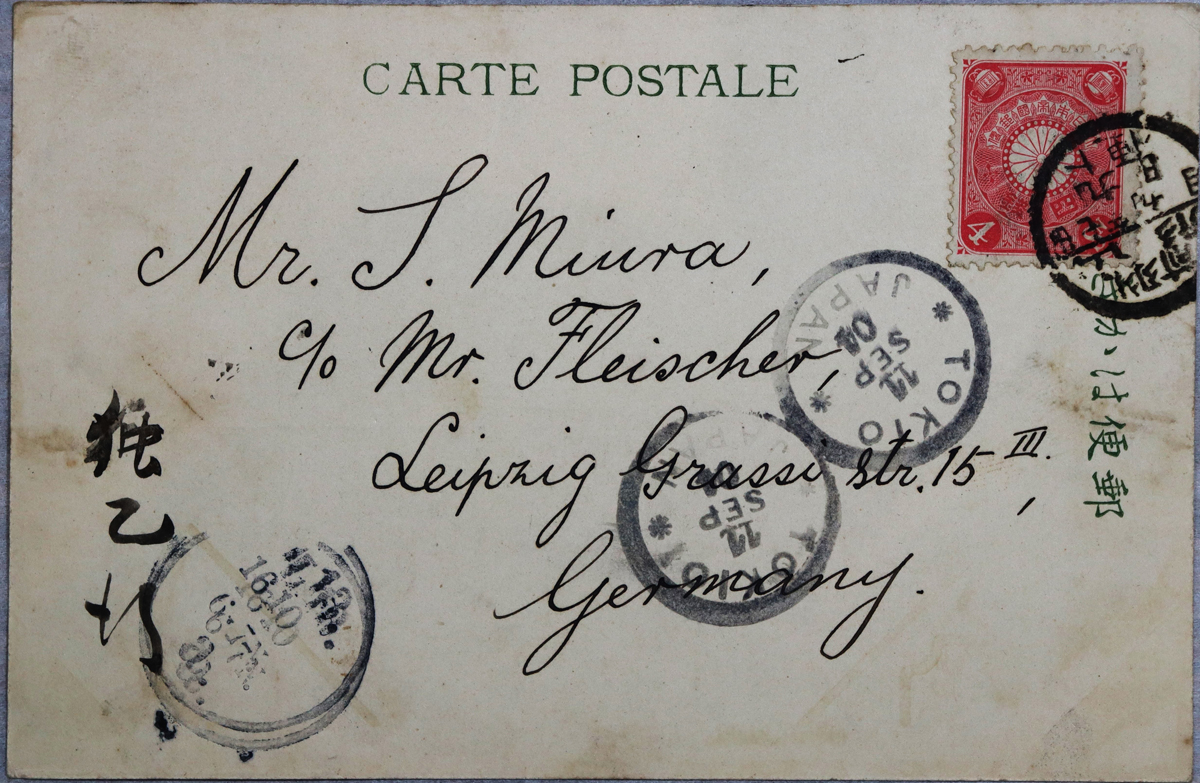 CARTE POSTALE
4
Mr. S. Miura,
c/o Mr. Fleischer,
Leipzig Grassi str. 15 III.,
Germany.
独乙行
郵便はかき
TOKIO JAPAN
11
SEP
04
TOKIO JAPAN
11
SEP
04
16.10
6-7N.